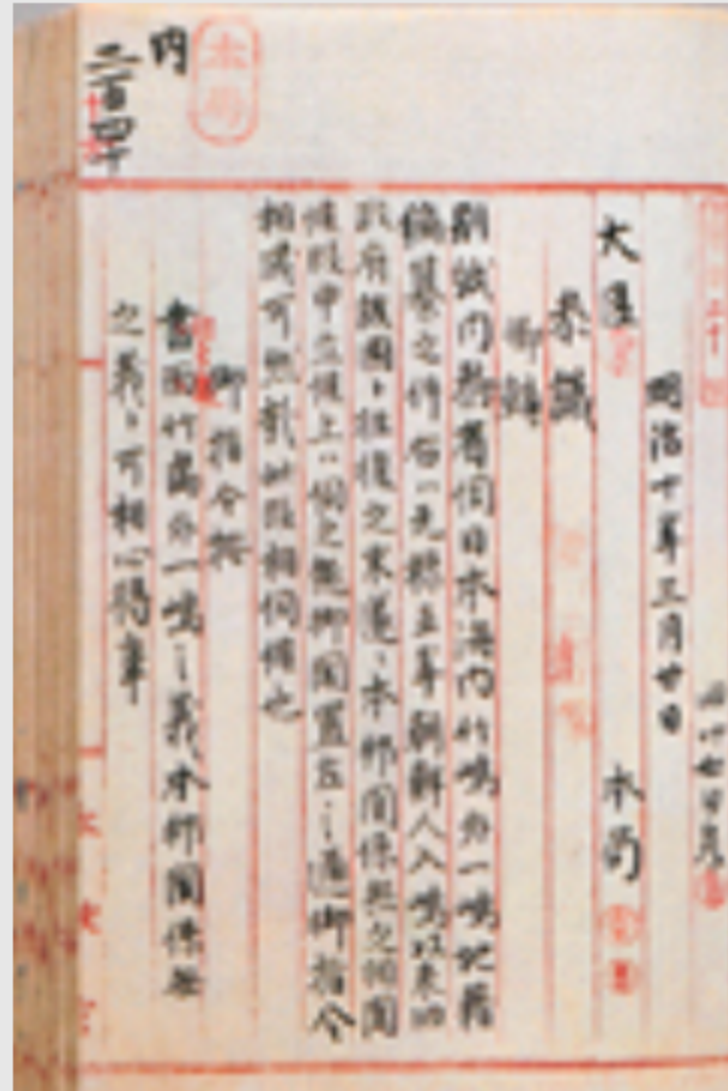 明治十年三月廿日
大臣 本局
参議
卿輔
別紙内務省伺日本海内竹嶋外一嶋地籍
編纂之件右ハ元禄五年朝鮮人入嶋以来旧
政府該国ト往復之末遂ニ本邦関係無之相聞
候段申立候上ハ伺之趣御聞置左之通御指令
相成可然哉此段相伺候也
御指令按
書面竹島外一嶋之義本邦関係無
之義ト可相心得事
本局
内
二百四十